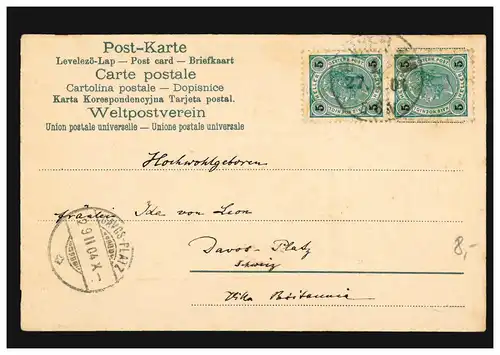 Post-Karte
Levelezö-Lap — Post card — Briefkaart
Carte postale
Cartolina postale — Dopisnice
Karta Korespondencyjna Tarjeta postal.
Weltpostverein
Union postale universelle — Unione postale universale
5 5 5 5
Hochwohlgeboren
Fräulein Ida von Leon
Davos-Platz
Schweiz
Villa Britannia
DAVOS-PLATZ
8,-